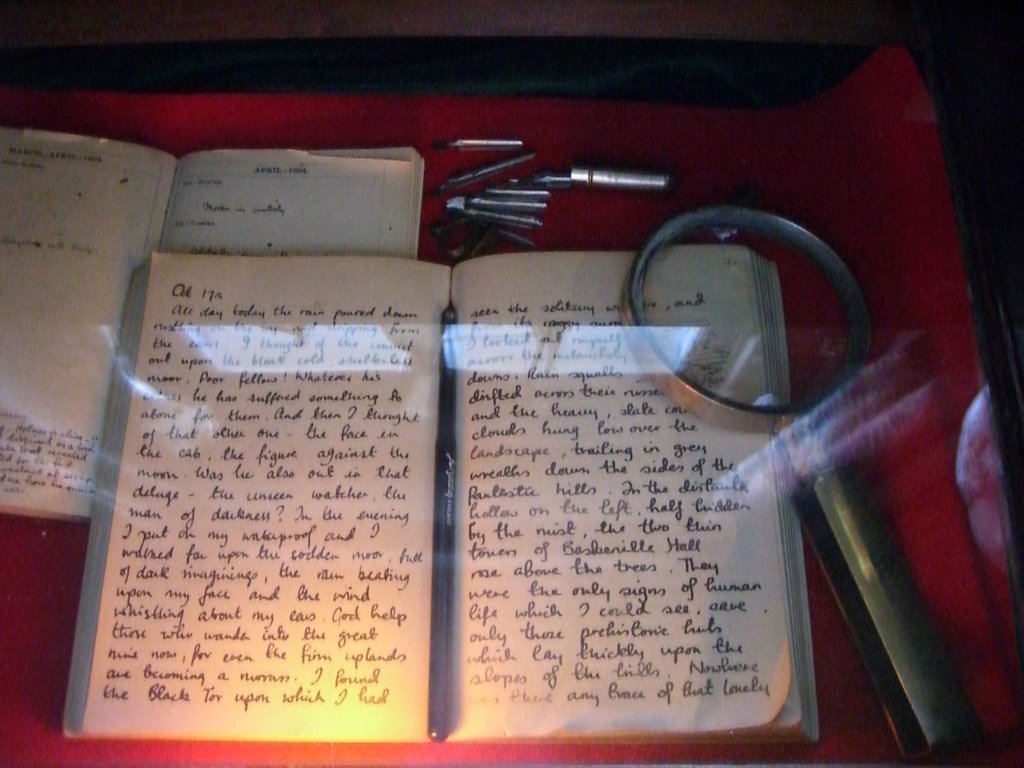 MARCH, APRIL - 1894
APRIL - 1894
Moran in custody
Oct 17th
All day today the rain poured down
rustling on the ivy and dripping from
the eaves. I thought of the convict
out upon the bleak cold shelterless
moor. Poor fellow! Whatever his
crimes he has suffered something to
atone for them. And then I thought
of that other one - the face in
the cab, the figure against the
moon. Was he also out in that
deluge - the unseen watcher, the
man of darkness? In the evening
I put on my waterproof and I
walked far upon the sodden moor, full
of dark imaginings, the rain beating
upon my face and the wind
whistling about my ears. God help
those who wander into the great
mire now, for even the firm uplands
are becoming a morass. I found
the Black Tor upon which I had
seen the solitary and
from its craggy
I looked out myself
across the melancholy
downs. Rain squalls
drifted across their russet
and the heavy, slate
clouds hung low over the
landscape, trailing in grey
wreaths down the sides of the
fantastic hills. In the distant
hollow on the left, half hidden
by the mist, the two thin
towers of Baskerville Hall
rose above the trees. They
were the only signs of human
life which I could see, save
only those prehistoric huts
which lay thickly upon the
slopes of the hills. Nowhere
was there any trace of that lonely